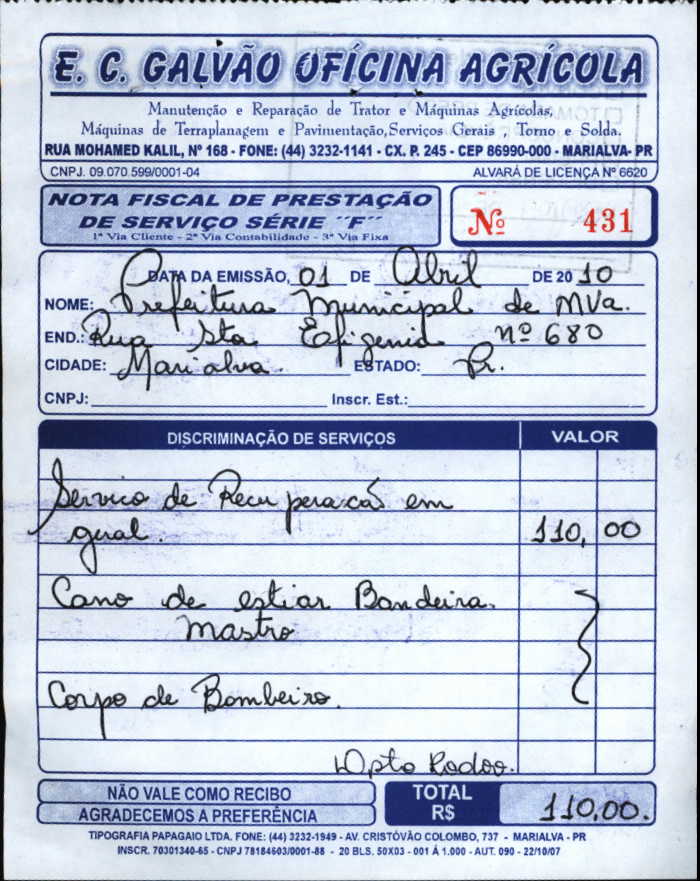 E. C. GALVÃO OFÍCINA AGRÍCOLA
Manutenção e Reparação de Trator e Máquinas Agrícolas,
Máquinas de Terraplanagem e Pavimentação,Serviços Gerais , Torno e Solda.
RUA MOHAMED KALIL, Nº 168 - FONE: (44) 3232-1141 - CX. P. 245 - CEP 86990-000 - MARIALVA- PR
CNPJ. 09.070.599/0001-04 ALVARÁ DE LICENÇA Nº 6620
NOTA FISCAL DE PRESTAÇÃO
DE SERVIÇO SÉRIE ´´F´´
1ª Via Cliente - 2ª Via Contabilidade - 3ª Via Fixa
Nº 431
DATA DA EMISSÃO, 01 DE Abril DE 2010
NOME: Prefeitura Municipal de MVa.
END.: Rua Sta Efigenia nº 680
CIDADE: Marialva. ESTADO: Pr.
CNPJ: Inscr. Est.:
DISCRIMINAÇÃO DE SERVIÇOS VALOR
Servico de Recuperacão em
geral. 110,00
Cano de estiar Bandeira.
Mastro
Corpo de Bombeiro.
Dpto Rodov.
NÃO VALE COMO RECIBO
AGRADECEMOS A PREFERÊNCIA
TOTAL
R$ 110,00.
TIPOGRAFIA PAPAGAIO LTDA. FONE: (44) 3232-1949 - AV. CRISTÓVÃO COLOMBO, 737 - MARIALVA - PR
INSCR. 70301340-65 - CNPJ 78184603/0001-88 - 20 BLS. 50X03 - 001 Á 1.000 - AUT. 090 - 22/10/07